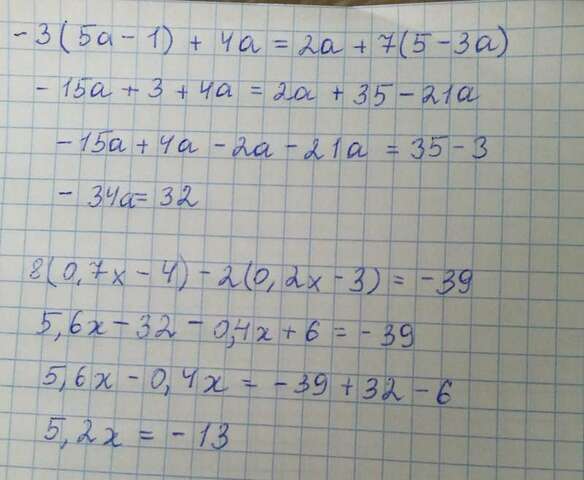 -3(5a-1)+4a=2a+7(5-3a)
-15a+3+4a=2a+35-21a
-15a+4a-2a-21a=35-3
-34a=32
8(0,7x-4)-2(0,2x-3)=-39
5,6x-32-0,4x+6=-39
5,6x-0,4x=-39+32-6
5,2x=-13